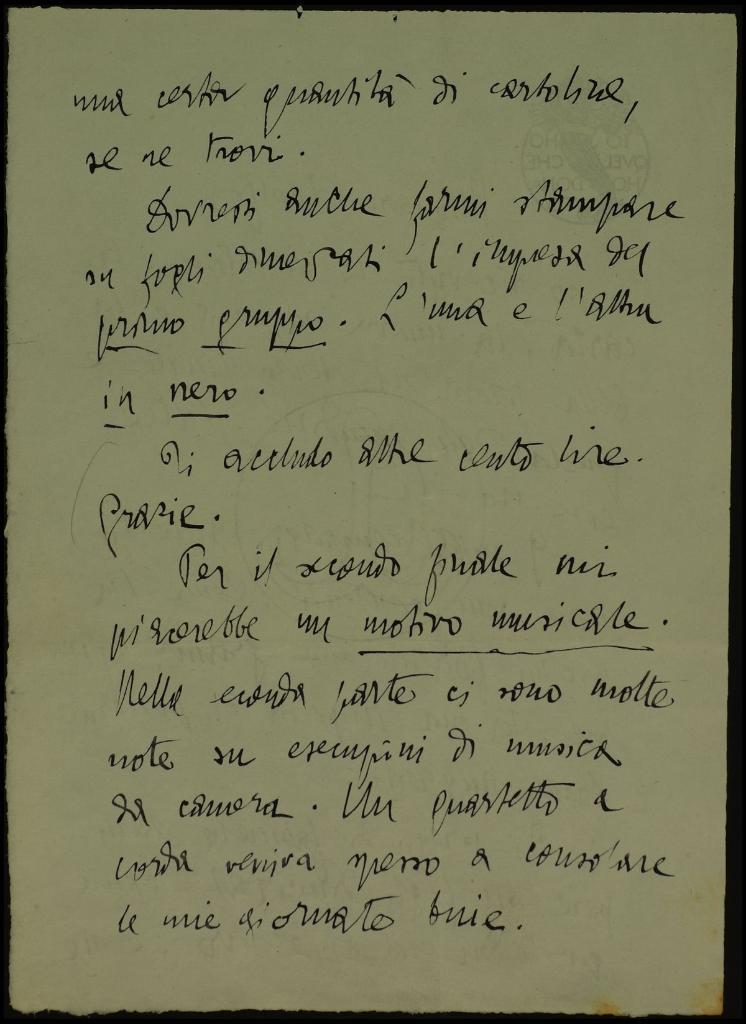 una certa quantità di cartolina,
se ne trovi.
Dovresti anche farmi stampare
su fogli l'impresa del
primo gruppo. L'una e l'altra
in nero.
Ti accludo altre cento lire.
Grazie.
Per il secondo finale mi
piacerebbe un motivo musicale.
Nella seconda parte ci sono molte
note su esecuzioni di musica
da camera. Un quartetto a
corda veniva spesso a consolare
le mie giornate buie.